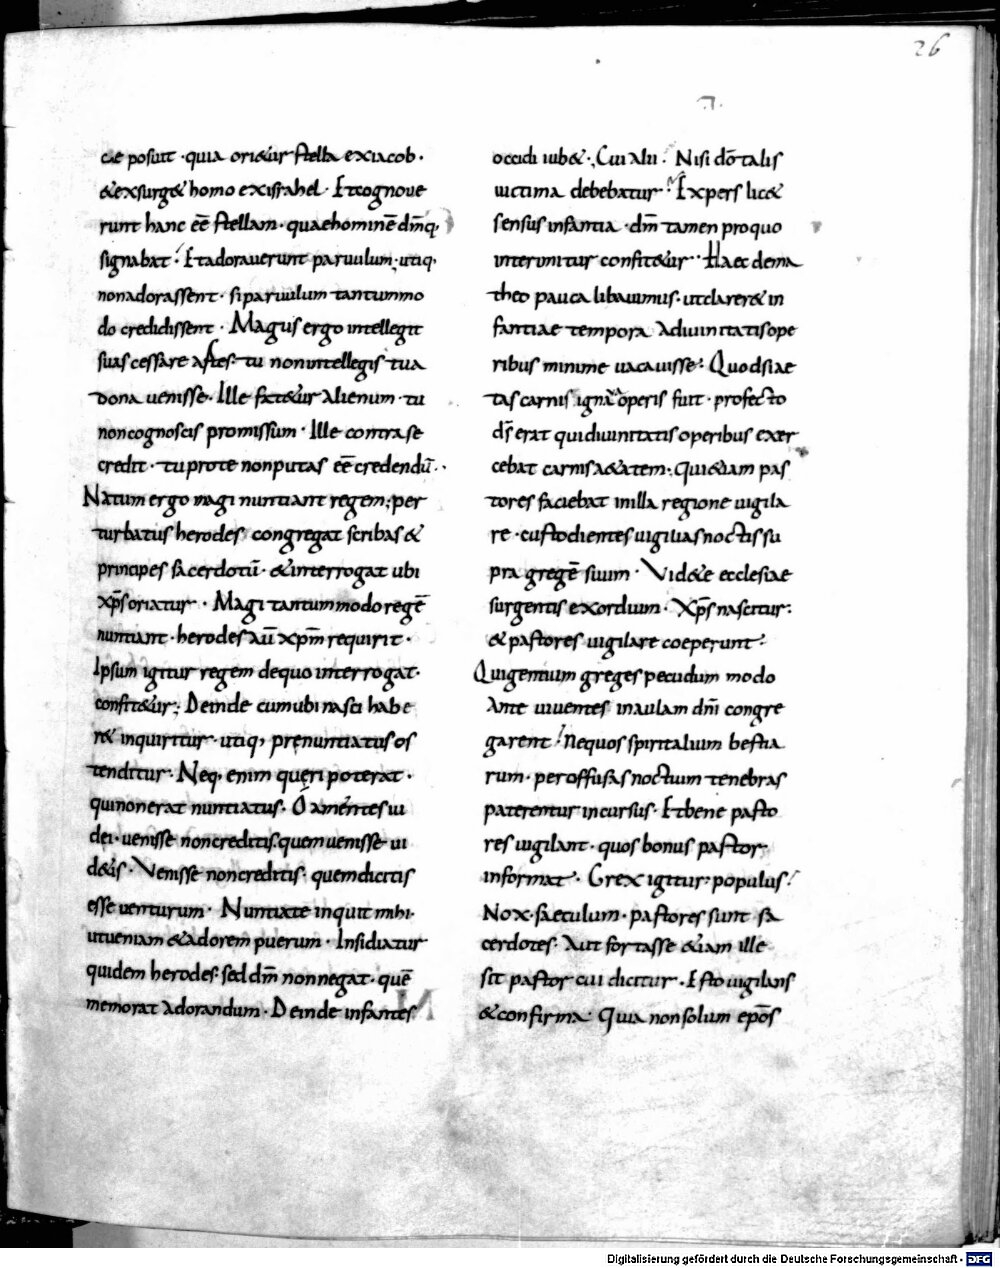 26
ce posuit · quia oriетur stella exiacob ·
&exsurg& homo exisrahel · Etcognoue
runt hanc eē stellam · quaehominē dm̄q;
signabat · Etadorauerunt paruulum; utiq;
nonadorassent · siparuulum tantummo
do credidissent · Magus ergo intellegit
suas cessare artes · tu nonintellegis tua
dona uenisse · Ille fat&ur alienum · tu
noncognoscis promissum · Ille contrase
credit · tuprote nonputas eē credendū ·
Natum ergo magi nuntiant regem; per
turbatus herodes congregat scribas &
principes sacerdotū · &interrogat ubi
xp̄soriatur · Magi tantummodo regē
nuntiant · herodes aū xpm̄ requirit ·
Ipsum igitur regem dequo interrogat ·
confit&ur; Deinde cumubi nasci habe
r& inquiritur · utiq; prenuntiatus os
tenditur · Neq; enim queri poterat ·
quinonerat nuntiatus · O amentes iu
dei · uenisse noncreditis · quemuenisse ui
d&is · Venisse noncreditis · quemdicitis
esse uenturum · Nuntiate inquit mihi ·
utueniam &adorem puerum · Insidiatur
quidem herodes · sed dm̄ nonnegat · quē
memorat adorandum · Deinde infantes
occidi iub& · Cui alii · Nisi dō talis
uictima debebatur · Expers lic&
sensus infantia · dm̄ tamen proquo
interimitur confit&ur · Haec dema
theo pauca libauimus · utclarer& in
fantiae tempora adiuinitatisope
ribus minime uacauisse · Quodsiae
tas carnis ignaua operis fuit · profecto
ds̄ erat quidiuinitatis operibus exer
cebat carnisa&atem; qui&iam pas
tores faciebat inilla regione uigila
re · custodientes uigiliasnoctissu
pra gregē suum · Vid&e ecclesiae
surgentis exordium · Xp̄s nascitur ·
& pastores uigilare coeperunt ·
Quigentium greges pecudum modo
Ante uiuentes inaulam dn̄i congre
garent · Nequos spiritalium bestia
rum · peroffusas noctium tenebras
paterentur incursus · Etbene pasto
res uigilant · quos bonus pastor
informat · Grex igitur · populus ·
Nox · saeculum · pastores sunt sa
cerdotes · Aut fortasse &iam ille
sit pastor cui dicitur · Esto uigilans
&confirma · Quia nonsolum ep̄os
Digitalisierung gefördert durch die Deutsche Forschungsgemeinschaft · DFG